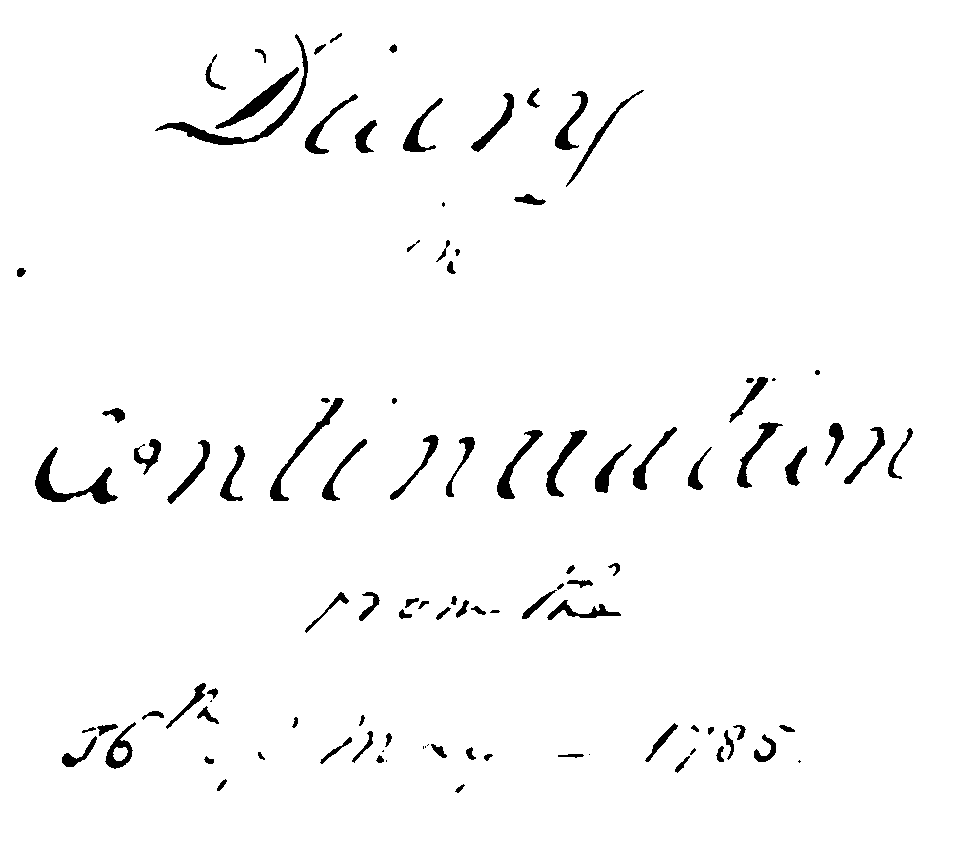 Diary
in
Continuation
from the
16th of May — 1785.